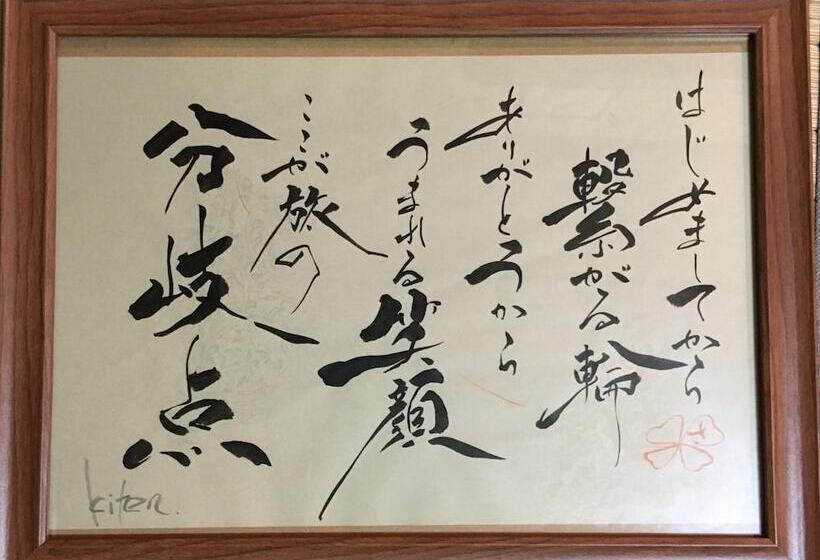 はじめましてから
繋がる輪
ありがとうから
うまれる笑顔
ここが旅の
分岐点
kiter.